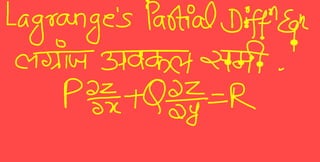 Lagrange's Partial Diffⁿ Eqn
लग्रांज अवकल समी.
P∂z/∂x + Q∂z/∂y = R